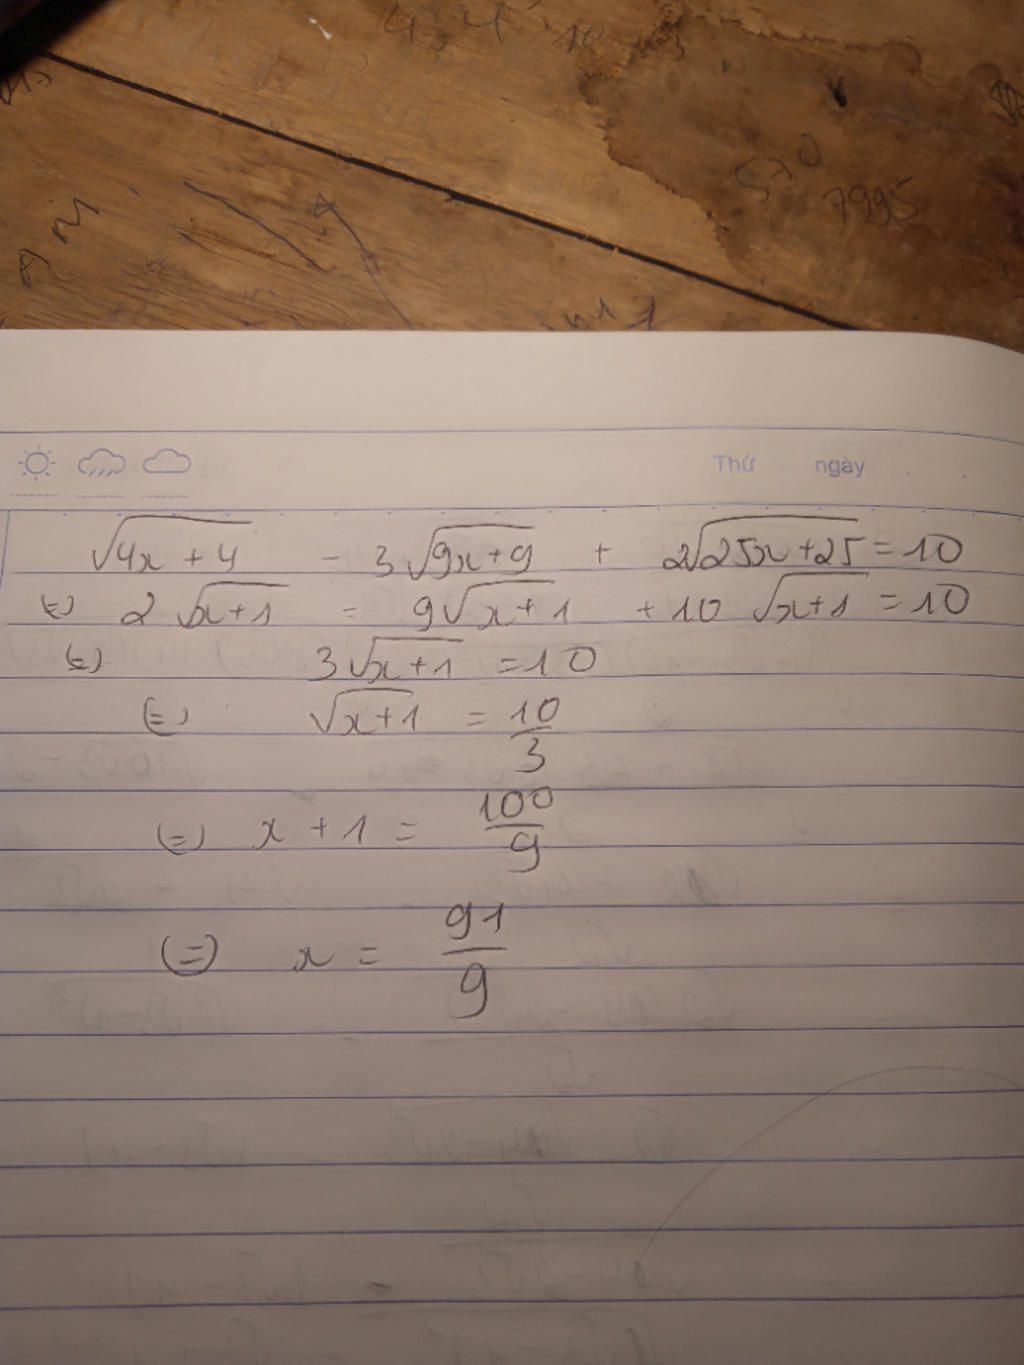 570
7995
Thứ ngày
√4x+4 - 3√9x+9 + 2√25x+25 = 10
(=) 2√x+1 = 9√x+1 + 10√x+1 = 10
(=) 3√x+1 = 10
(=) √x+1 = 10/3
(=) x + 1 = 100/9
(=) x = 91/9